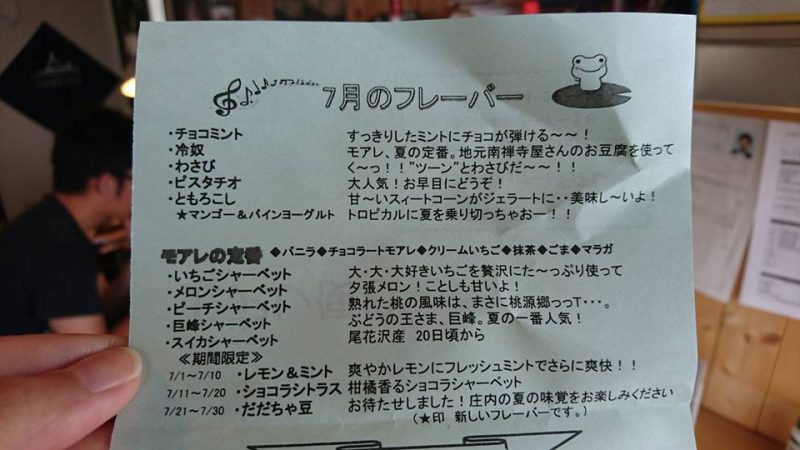 7月のフレーバー
・チョコミント すっきりしたミントにチョコが弾ける～～！
・冷奴 モアレ、夏の定番。地元南禅寺屋さんのお豆腐を使って
・わさび く～っ！！"ツーン"とわさびだ～～！！
・ピスタチオ 大人気！お早目にどうぞ！
・ともろこし 甘～いスィートコーンがジェラートに・・美味し～いよ！
★マンゴー＆パインヨーグルト トロピカルに夏を乗り切っちゃおー！！
モアレの定番 ◆バニラ◆チョコラートモアレ◆クリームいちご◆抹茶◆ごま◆マラガ
・いちごシャーベット 大・大・大好きいちごを贅沢にた～っぷり使って
・メロンシャーベット 夕張メロン！ことしも甘いよ！
・ピーチシャーベット 熟れた桃の風味は、まさに桃源郷っっT・・・。
・巨峰シャーベット ぶどうの王さま、巨峰。夏の一番人気！
・スイカシャーベット 尾花沢産 20日頃から
≪期間限定≫
7/1～7/10 ・レモン＆ミント 爽やかレモンにフレッシュミントでさらに爽快！！
7/11～7/20 ・ショコラシトラス 柑橘香るショコラシャーベット
7/21～7/30 ・だだちゃ豆 お待たせしました！庄内の夏の味覚をお楽しみください
（★印 新しいフレーバーです。）